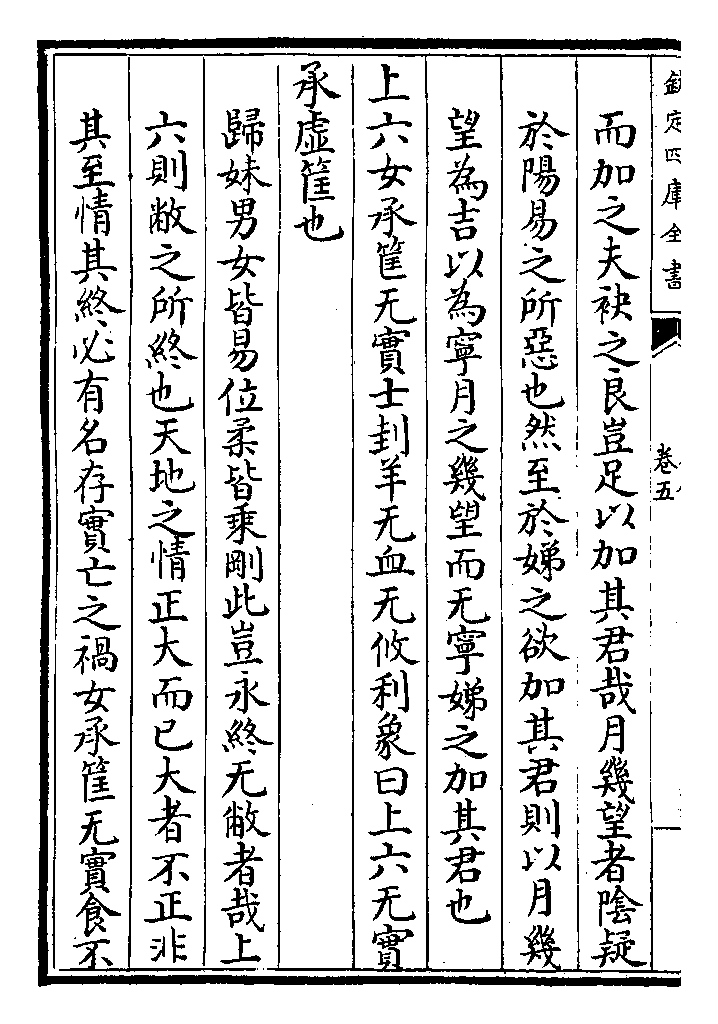 欽定四庫全書
卷五
而加之夫袂之良豈足以加其君哉月幾望者陰疑
於陽易之所惡也然至於娣之欲加其君則以月幾
望為吉以為寧月之幾望而无寧娣之加其君也
上六女承筐无實士刲羊无血无攸利象曰上六无實
承虚筐也
歸妹男女皆易位柔皆乘剛此豈永終无敝者哉上
六則敝之所終也天地之情正大而已大者不正非
其至情其終必有名存實亡之禍女承筐无實食不